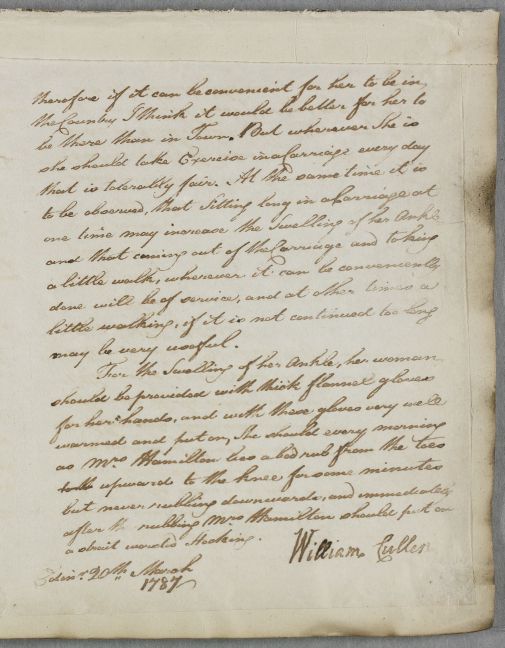 therefore if it can be convenient for her to be in
the Country I think it would be better for her to
be there than in Town. But wherever She is
she should take Exercise in a Carriage every day
that is tolerably fair. At the same time it is
to be observed, that Sitting long in a Carriage at
one time may increase the Swelling of her Ankle
and that coming out of the Carriage and taking
a little walk, wherever it can be conveniently
done will be of service, and at other times a
little walking, if it is not continued too long
may be very usefull.
For the Swelling of her Ankle, her woman
should be provided with thick flannel gloves
for her hands, and with these gloves very well
warmed and put on, She should every morning
as Mrs Hamilton lies a bed rub from the toes
upwards to the knee for some minutes
but never rubbing downwards, and immediately
after the rubbing Mrs Hamilton should put on
a strait worsted Stocking.
William Cullen
Edinr. 20th March
1787